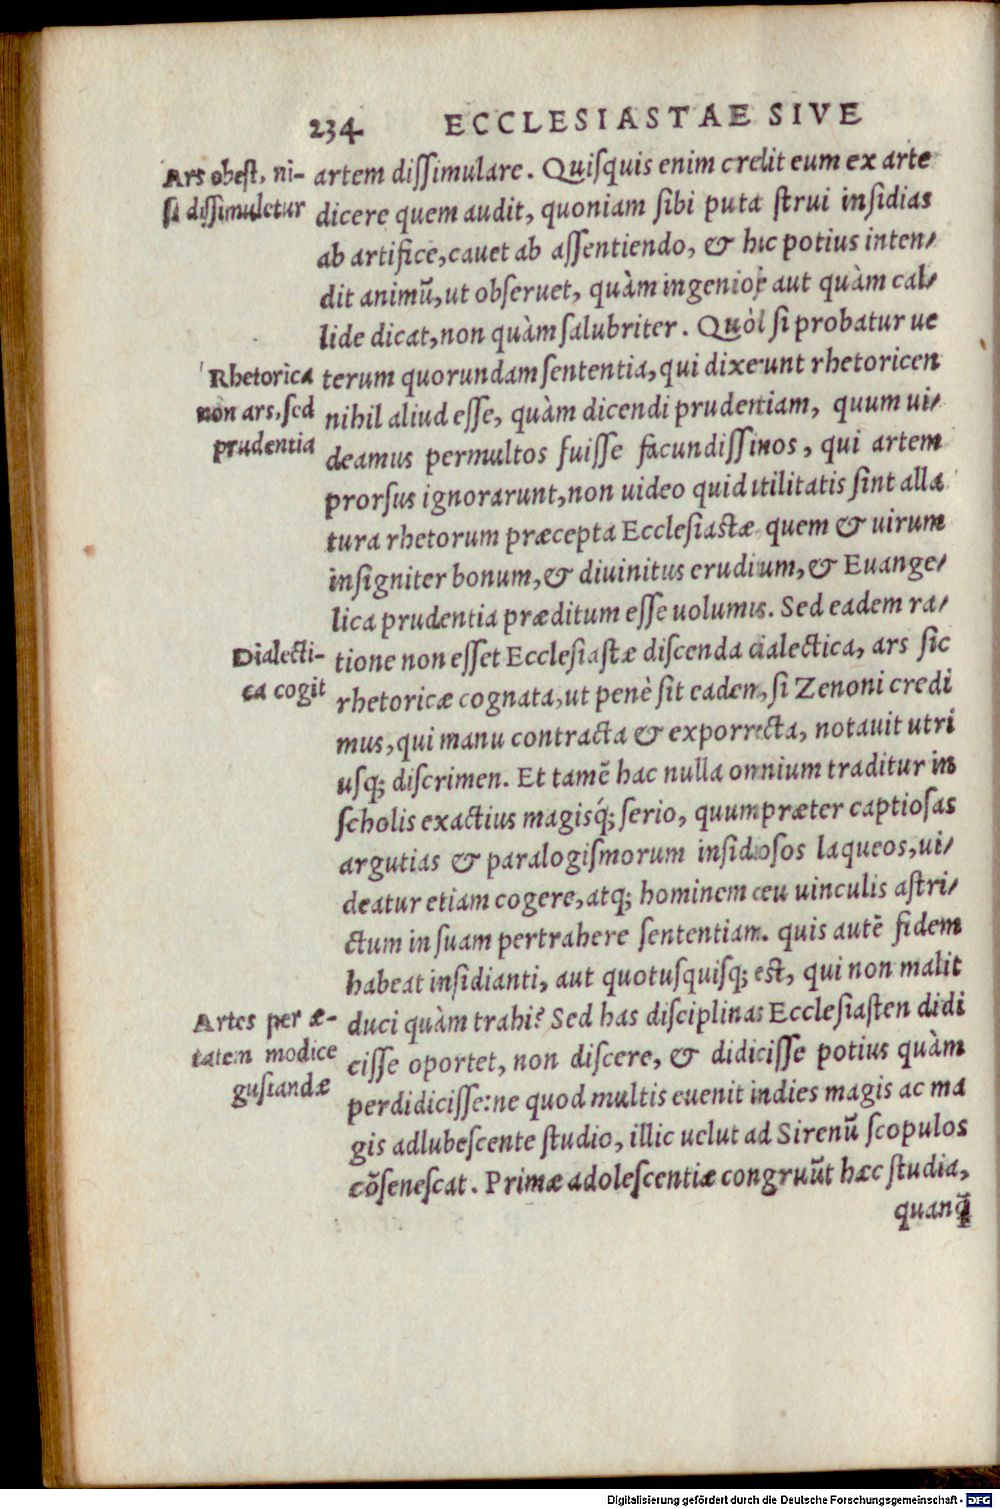 234 ECCLESIASTAE SIVE
Ars obest, ni-
si dissimuletur
artem dissimulare. Quisquis enim credit eum ex arte
dicere quem audit, quoniam sibi puta strui insidias
ab artifice, cauet ab assentiendo, & hic potius inten/
dit animū, ut obseruet, quàm ingeniose aut quàm cal/
lide dicat, non quàm salubriter. Quòd si probatur ue
Rhetorica
non ars, sed
prudentia
terum quorundam sententia, qui dixerunt rhetoricen
nihil aliud esse, quàm dicendi prudentiam, quum ui/
deamus permultos fuisse facundissimos, qui artem
prorsus ignorarunt, non uideo quid utilitatis sint alla
tura rhetorum præcepta Ecclesiastæ, quem & uirum
insigniter bonum, & diuinitus eruditum, & Euange/
lica prudentia præditum esse uolumus. Sed eadem ra/
Dialecti-
ca cogit
tione non esset Ecclesiastæ discenda dialectica, ars sic
rhetoricæ cognata, ut penè sit eadem, si Zenoni credi
mus, qui manu contracta & exporrecta, notauit utri
usq; discrimen. Et tamē hac nulla omnium traditur in
scholis exactius magisq́; serio, quum præter captiosas
argutias & paralogismorum insidiosos laqueos, ui/
deatur etiam cogere, atq; hominem ceu uinculis astri/
ctum in suam pertrahere sententiam. quis autē fidem
habeat insidianti, aut quotusquisq; est, qui non malit
Artes per æ-
tatem modice
gustandæ
duci quàm trahi? Sed has disciplinas Ecclesiasten didi
cisse oportet, non discere, & didicisse potius quàm
perdidicisse: ne quod multis euenit indies magis ac ma
gis adlubescente studio, illic uelut ad Sirenū scopulos
cōsenescat. Primæ adolescentiæ congruūt hæc studia,
quanq̄
Digitalisierung gefördert durch die Deutsche Forschungsgemeinschaft - DFG